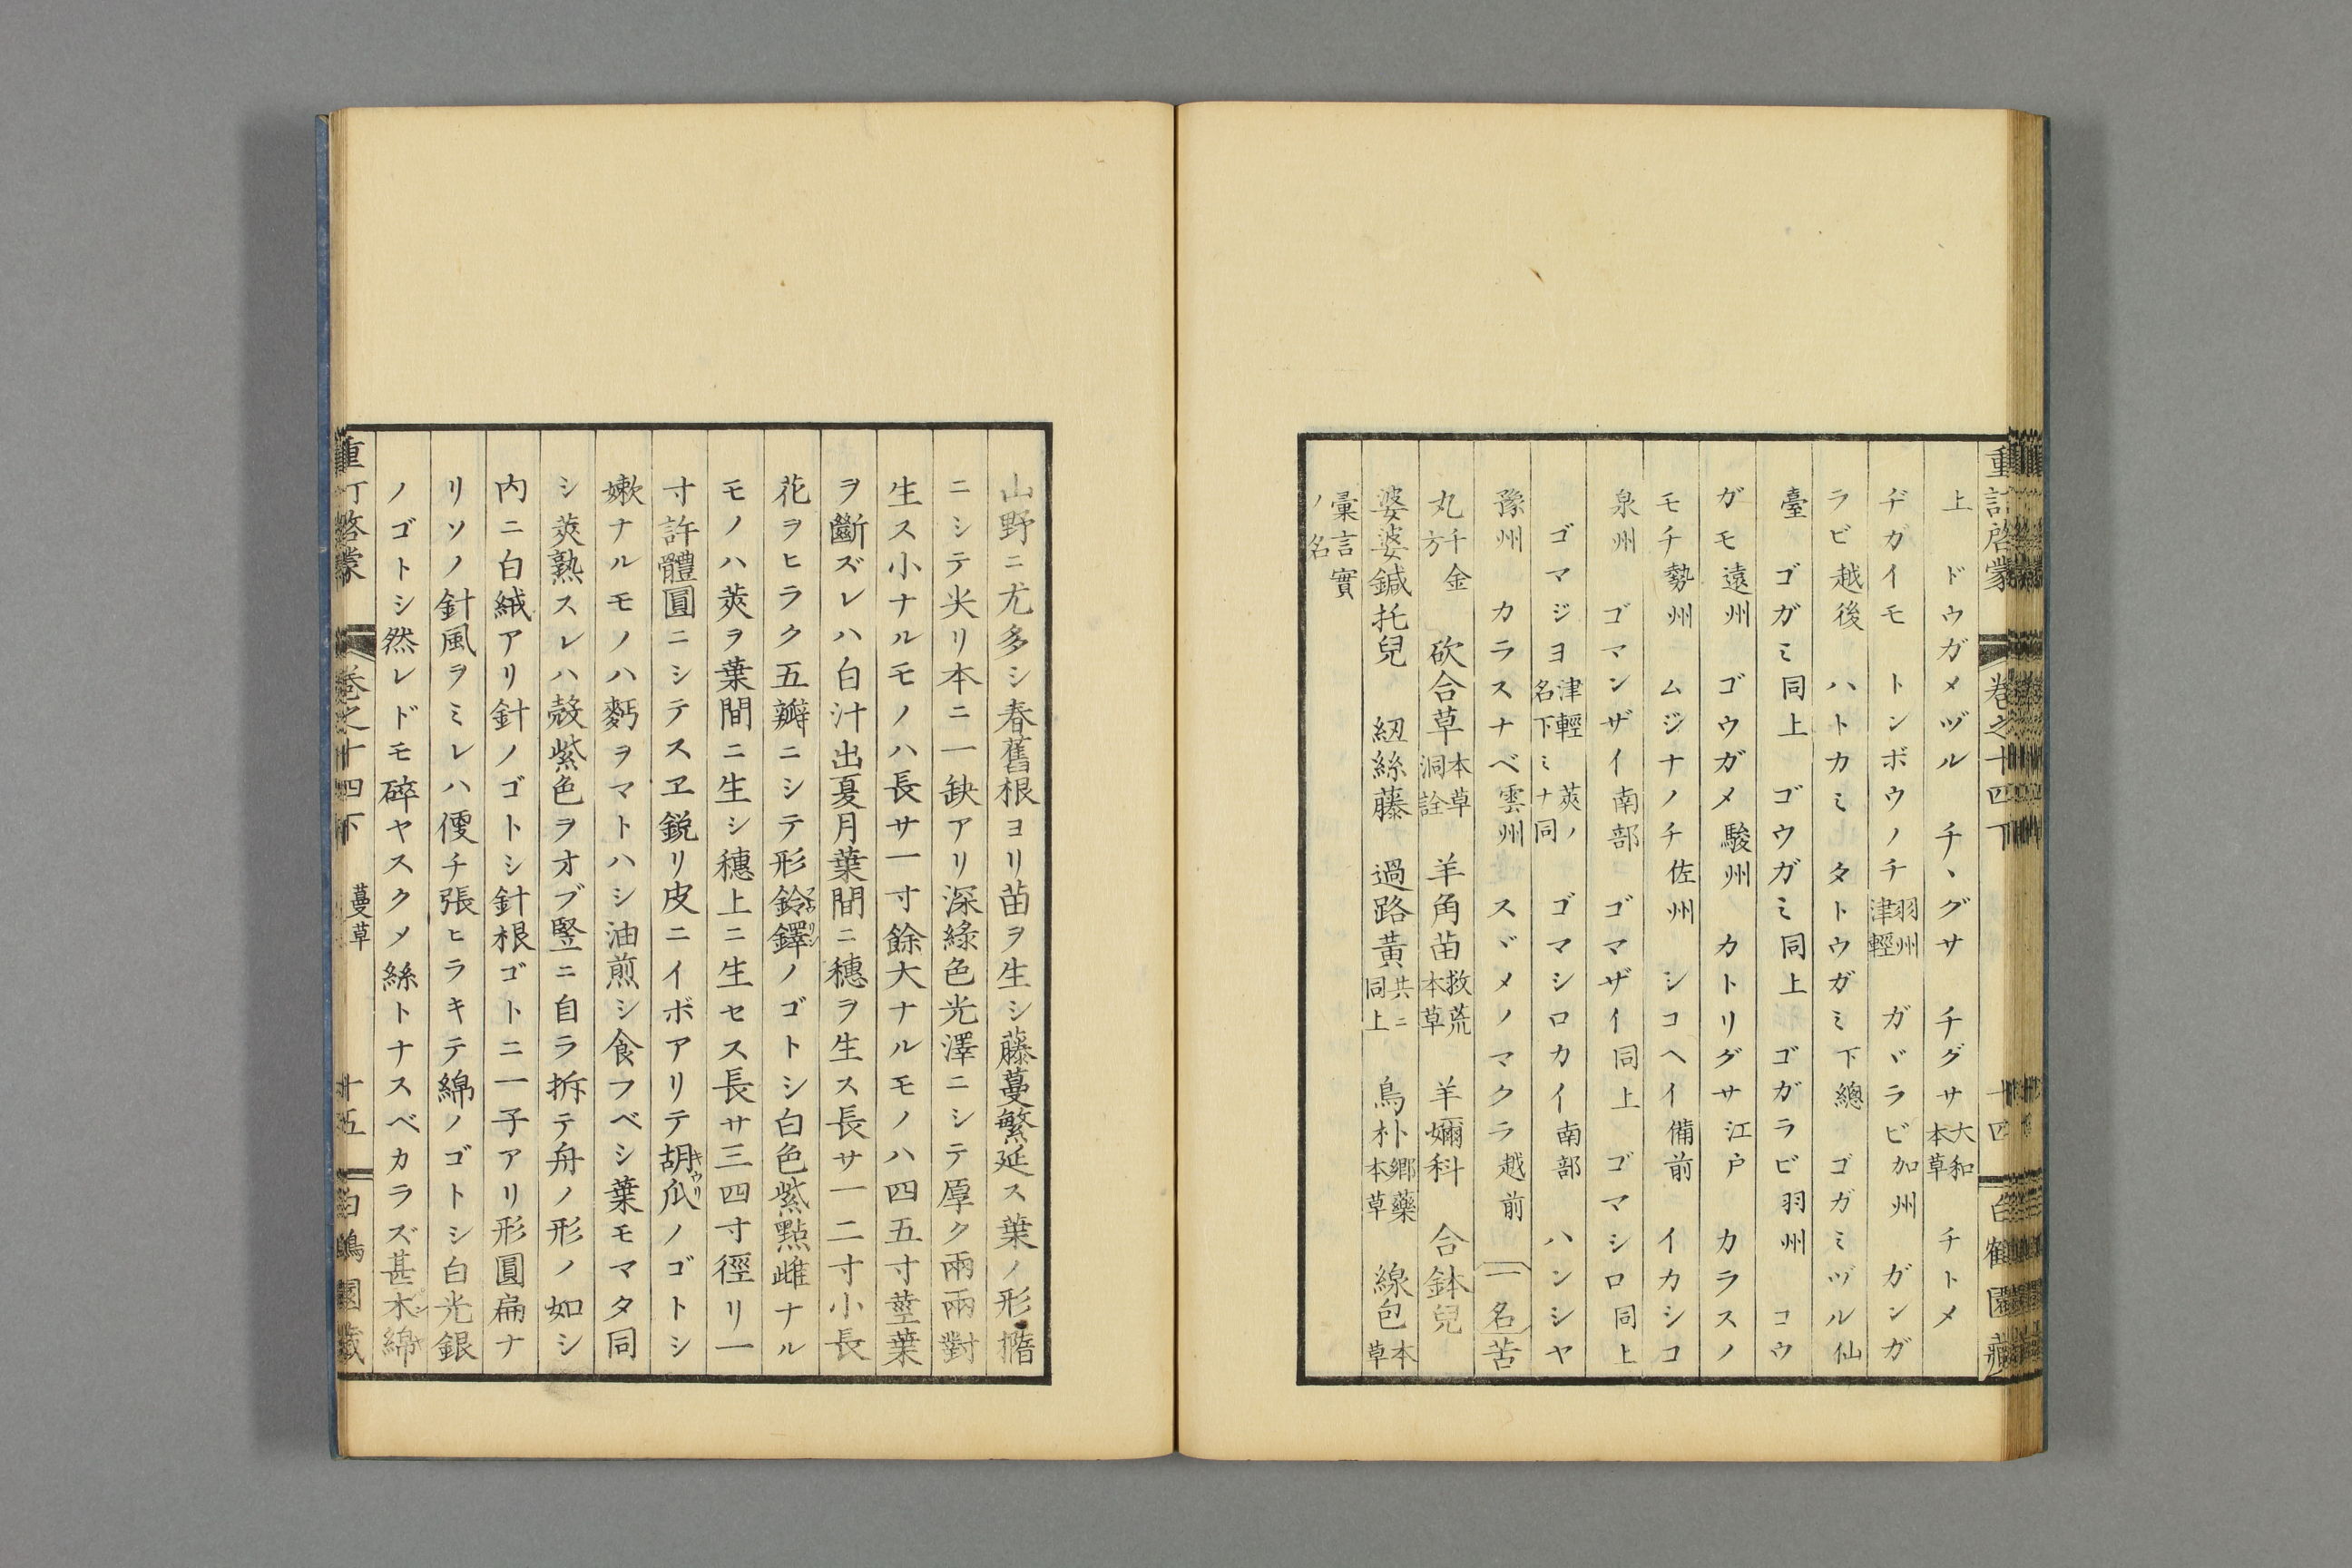 重訂啓蒙 卷之十四下 十四 白鶴園藏
上 ドウガメヅル チヽグサ チグサ 大和本草 チトメ
ヂガイモ トンボウノチ 羽州津輕 ガヾラビ 加州 ガンガ
ラビ 越後 ハトカミ タトウガミ 下總 ゴガミヅル 仙
臺 ゴガミ 同上 ゴウガミ 同上 ゴガラビ 羽州 コウ
ガモ 遠州 ゴウガメ 駿州 カトリグサ 江戸 カラスノ
モチ 勢州 ムジナノチ 佐州 シコヘイ 備前 イカシコ
泉州 ゴマンザイ 南部 ゴマザイ 同上 ゴマシロ 同上
ゴマジヨ 津輕名下ミ 莢ノナ同 ゴマシロカイ 南部 ハンシヤ
豫州 カラスナベ 雲州 スヾメノマクラ 越前 一名 苦
丸 千金方 砍合草 本草洞詮 羊角苗 救荒本草 羊嬭科 合鉢兒
婆婆鍼托兒 紉絲藤 過路黃 共ニ同上 鳥朴 郷藥本草 線包 本草
彙言實ノ名
山野ニ尤多シ春舊根ヨリ苗ヲ生シ藤蔓繁延ス葉ノ形㨋
ニシテ尖リ本ニ一缺アリ深綠色光澤ニシテ厚ク兩兩對
生ス小ナルモノハ長サ一寸餘大ナルモノハ四五寸莖葉
ヲ斷ズレハ白汁出夏月葉間ニ穗ヲ生ス長サ一二寸小長
花ヲヒラク五瓣ニシテ形鈴鐸ノゴトシ白色紫點雌ナル
モノハ莢ヲ葉間ニ生シ穗上ニ生セス長サ三四寸徑リ一
寸許體圓ニシテスヱ銳リ皮ニイボアリテ胡瓜キウリノゴトシ
嫰ナルモノハ麪ヲマトハシ油煎シ食フベシ葉モマタ同
シ莢熟スレハ殼紫色ヲオブ竪ニ自ラ拆テ舟ノ形ノ如シ
内ニ白絨アリ針ノゴトシ針根ゴトニ一子アリ形圓扁ナ
リソノ針風ヲミレハ便チ張ヒラキテ綿ノゴトシ白光銀
ノゴトシ然レドモ碎ヤスクメ絲トナスベカラズ甚木綿
重訂啓蒙 卷之十四下 蔓草 十五 白鶴園藏